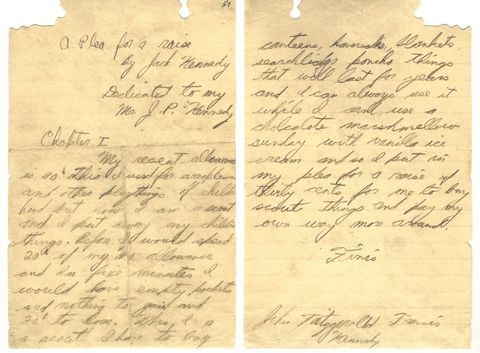 A Plea for a raise
By Jack Kennedy
Dedicated to my
Mr. J. P. Kennedy
Chapter I
My recent allowance
is 40¢. This I used for areoplanes
and other playthings of childhood
but now I am a scout
and I put away my childish
things. Before I would spend
20¢ of my ¢.40 allowance
and In five minutes I
would have empty pockets
and nothing to gain and
20¢ to lose. When I a
a scout I have to buy
canteens, haversacks, blankets
searchlidgs poncho things
that will last for years
and I can always use it
while I cant use a
cholcalote marshmellow
sunday with vanilla ice
cream and so I put in
my plea for a raise of
thirty cents for me to buy
scout things and pay my
own way more around.
Finis
John Fitzgerald Francis
Kennedy